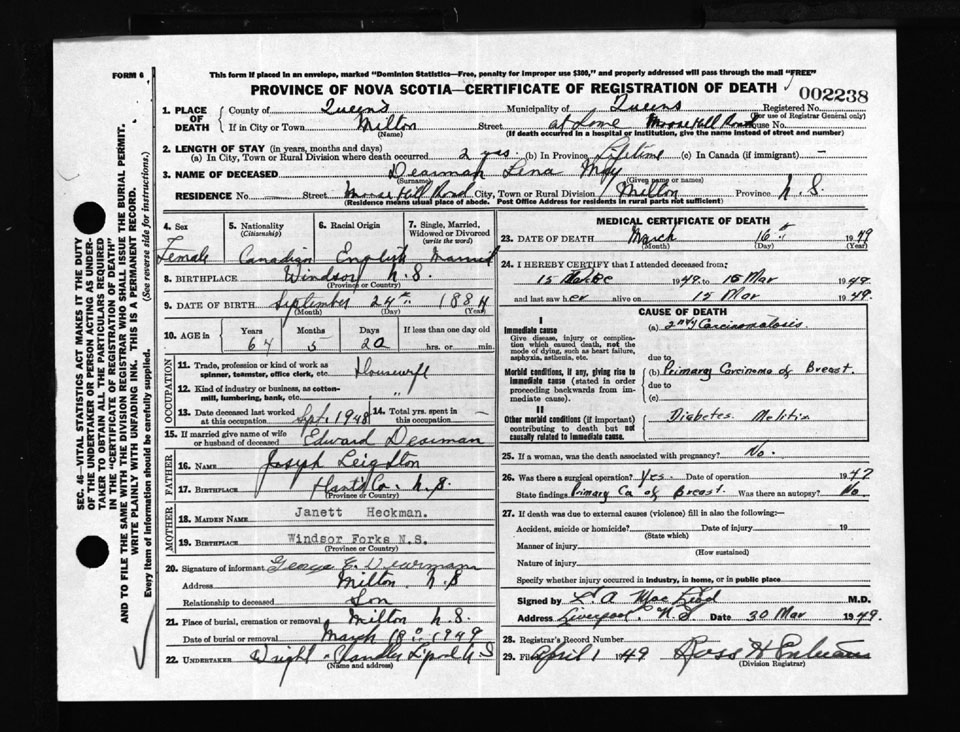 FORM 6
This form if placed in an envelope, marked "Dominion Statistics—Free, penalty for improper use $300," and properly addressed will pass through the mail "FREE"
PROVINCE OF NOVA SCOTIA—CERTIFICATE OF REGISTRATION OF DEATH
002238
1. PLACE OF DEATH
County of Queens Municipality of Queens Registered No.
(For use of Registrar General only)
If in City or Town Milton Street at Home Moose Hill Road House No.
(Name) (If death occurred in a hospital or institution, give the name instead of street and number)
2. LENGTH OF STAY (in years, months and days)
(a) In City, Town or Rural Division where death occurred 2 yrs. (b) In Province Lifetime (c) In Canada (if immigrant) —
3. NAME OF DECEASED Dearman Lena May
(Surname) (Given name or names)
RESIDENCE No. Street Moose Hill Road City, Town or Rural Division Milton Province N.S.
(Residence means usual place of abode. Post Office Address for residents in rural parts not sufficient)
4. Sex 5. Nationality (Citizenship) 6. Racial Origin 7. Single, Married, Widowed or Divorced (write the word)
Female Canadian English Married
8. BIRTHPLACE Windsor N.S.
(Province or Country)
9. DATE OF BIRTH September 24th 1884
(Month) (Day) (Year)
10. AGE in Years Months Days If less than one day old
64 5 20 hrs. or min.
OCCUPATION
11. Trade, profession or kind of work as spinner, teamster, office clerk, etc. Housewife
12. Kind of industry or business, as cotton-mill, lumbering, bank, etc. "
13. Date deceased last worked at this occupation Sept. 1948 14. Total yrs. spent in this occupation —
15. If married give name of wife or husband of deceased Edward Dearman
FATHER
16. NAME Joseph Leighton
17. BIRTHPLACE Hants Co. N.S.
(Province or Country)
MOTHER
18. MAIDEN NAME Janett Heckman.
19. BIRTHPLACE Windsor Forks N.S.
(Province or Country)
20. Signature of informant George E. Dearman
Address Milton N.S
Relationship to deceased Son
21. Place of burial, cremation or removal Milton N.S.
Date of burial or removal March 18th 1949
22. UNDERTAKER Wright & Chandler L'pool N S
(Name and address)
MEDICAL CERTIFICATE OF DEATH
23. DATE OF DEATH March 16th 1949
(Month) (Day) (Year)
24. I HEREBY CERTIFY that I attended deceased from:
15 1949. to 15 Mar 1949.
and last saw her alive on 15 Mar 1949.
CAUSE OF DEATH
I
Immediate cause
Give disease, injury or complication which caused death, not the mode of dying, such as heart failure, asphyxia, asthenia, etc.
(a) 2ndy Carcinomatosis
due to
Morbid conditions, if any, giving rise to immediate cause (stated in order proceeding backwards from immediate cause).
(b) Primary Carcinoma of Breast.
due to
(c)
II
Other morbid conditions (if important) contributing to death but not causally related to immediate cause.
Diabetes Melitis
25. If a woman, was the death associated with pregnancy? No.
26. Was there a surgical operation? Yes. Date of operation 1947
State findings Primary Ca of Breast. Was there an autopsy? No
27. If death was due to external causes (violence) fill in also the following:—
Accident, suicide or homicide? Date of injury 19
(State which)
Manner of injury
(How sustained)
Nature of injury
Specify whether injury occurred in industry, in home, or in public place
Signed by L. A. MacLeod M.D.
Address Liverpool, N.S. Date 30 Mar 1949.
28. Registrar's Record Number
29. Filed April 1 1949 Ross H
(Division Registrar)
SEC. 46—VITAL STATISTICS ACT MAKES IT THE DUTY
OF THE UNDERTAKER OR PERSON ACTING AS UNDER-
TAKER TO OBTAIN ALL THE PARTICULARS REQUIRED
IN THE "CERTIFICATE OF REGISTRATION OF DEATH"
AND TO FILE THE SAME WITH THE DIVISION REGISTRAR WHO SHALL ISSUE THE BURIAL PERMIT.
WRITE PLAINLY WITH UNFADING INK. THIS IS A PERMANENT RECORD.
Every item of information should be carefully supplied. (See reverse side for instructions.)